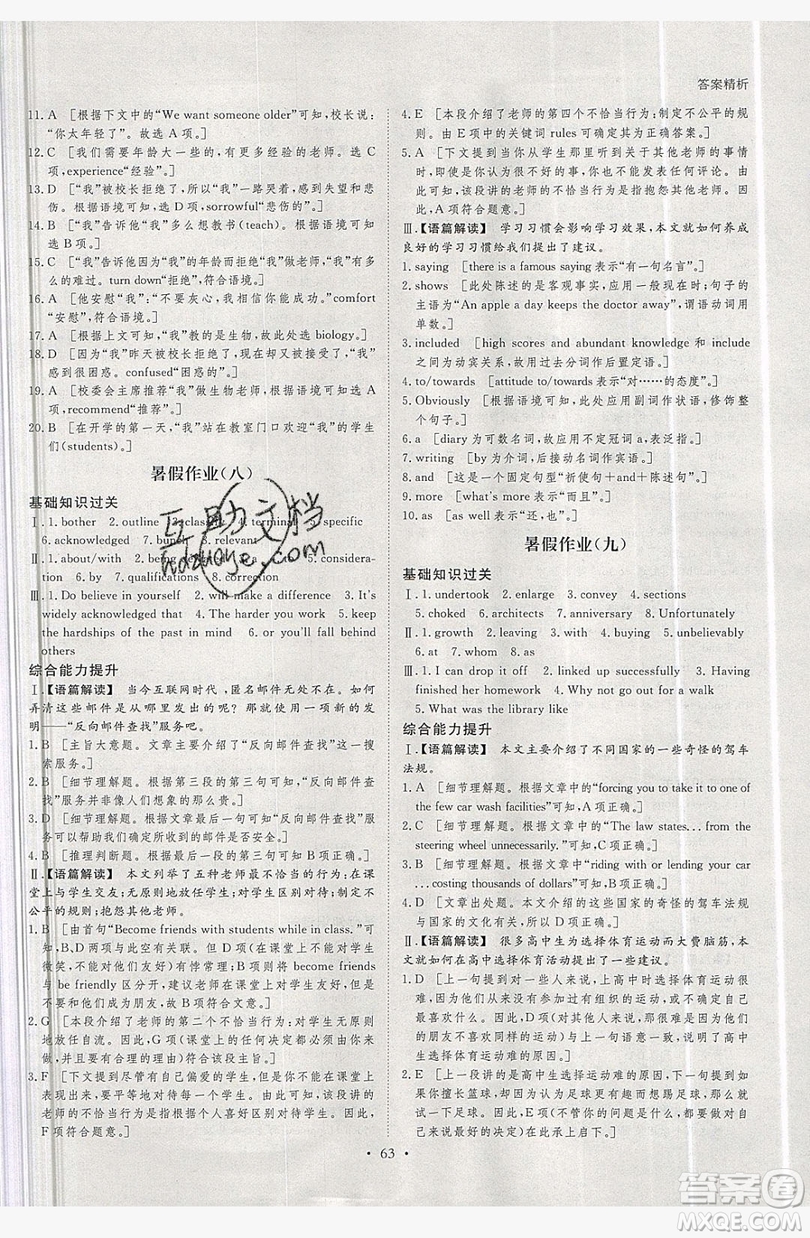 答案精析
11. A [根据下文中的“We want someone older”可知，校长说：
“你太年轻了”。故选A项。]
12. C [我们需要年龄大一些的，有更多经验的老师。选C
项，experience“经验”。]
13. D [“我”被校长拒绝了，所以“我”一路哭着，感到失望和悲
伤。根据语境可知选D项，sorrowful“悲伤的”。]
14. B [“我”告诉他“我”多么想教书(teach)。根据语境可知
选B项。]
15. C [“我”告诉他因为“我”的年龄而拒绝“我”做老师，“我”有
多么的难过。turn down“拒绝”，符合语境。]
16. A [他安慰“我”：“不要灰心，我相信你能成功。”comfort
“安慰”，符合语境。]
17. B [根据上文可知，“我”教的是生物，故选biology。]
18. D [因为“我”昨天被校长拒绝了，现在又让回去，“我”感
到很困惑。confused“困惑的”。]
19. A [校委会主席推荐“我”做生物老师，根据语境可知选A
项，recommend“推荐”。]
20. B [在开学的第一天，“我”站在教室门口欢迎“我”的学生
们(students)。]
暑假作业(八)
基础知识过关
Ⅰ. 1. bother 2. outline 3. classify 4. terminal 5. specific
6. acknowledged 7. bunch 8. relevant
Ⅱ. 1. about/with 2. being 4. 5. considera-
tion 6. by 7. qualifications 8. correction
Ⅲ. 1. Do believe in yourself 2. will make a difference 3. It's
widely acknowledged that 4. It is no wonder that 5. keep
the hardships of the past in mind 6. or you'll fall behind
others
综合能力提升
Ⅰ.【语篇解读】 当今互联网时代，匿名邮件无处不在。如何
弄清这些邮件是从哪里发出的呢？有了一项新的发
明——“反向邮件查找”服务吧。
1. B [主旨大意题。文章主要介绍了“反向邮件查找”这一搜
索服务。]
2. A [细节理解题。根据第三段的第三句可知，“反向邮件查
找”服务并非像人们想象的那样复杂，而是相当简单。]
3. D [细节理解题。根据第四段的第一句可知，“反向邮件查找”服
务可以帮助我们确定所收到的邮件是否安全。]
4. B [推理判断题。根据最后一段的第三句可知B项正确。]
Ⅱ.【语篇解读】 本文列举了五种老师最不恰当的行为：在课
堂上与学生友爱；无原则地放任学生；对学生区别对待；制定
不公平的规则；抱怨其他老师。
1. B [由首句“Become friends with students while in class.”可
知，B、D项与此句有关联。B项(在课堂上你可能对学生
微笑，不可能没有一点惧怕)有悖常理；D项将become friends
与be friendly区分开，建议老师在课堂上要对学生友善，
但不要和学生做朋友。故D项正确。]
2. G [本段介绍了老师的第二个不恰当行为：对学生无原则
地放任自流。因此，G项(课堂上当你的学生完全失控时，
不要大惊小怪)符合该段主旨。]
3. F [下文提到尽管有自己喜爱的学生，但是不能在课堂上
表现出来，要平等地对待所有学生，因此，该段讲的是老
师的不恰当行为是根据个人喜好区别对待学生。因此，
F项符合题意。]
4. E [本段介绍了老师的第四个不恰当行为：制定不公平的规
则。由E项中的关键词rules可确定正确答案。]
5. A [下文提到当你从学生那里听到关于其他老师的事情
时，即使是真的，也要保持沉默，不要去谈论其他老师。因
此，可以确定，该段讲的老师的不恰当行为是指抱怨其他
老师。A项符合题意。]
Ⅲ.【语篇解读】 学习习惯会影响学习效果，本文就如何养成
良好的学习习惯给我们提出了建议。
1. saying [there is a famous saying表示“有一句名言”。]
2. shows [此处陈述的是客观事实，应用一般现在时；句子的
主语为“An apple a day keeps the doctor away”，谓语动词用
单数。]
3. included [high scores and abundant knowledge与include
间为动宾关系，故用过去分词作后置定语。]
4. to/towards [attitude to/towards表示“对……的态度”。]
5. Obviously [根据语境可知此处应用副词作状语，修饰整个
句子。]
6. a [diary为可数名词，故应用不定冠词a表示泛指。]
7. writing [by为介词，后接动名词作宾语。]
8. and [这是一个固定句型“祈使句＋and＋陈述句”。]
9. more [what's more表示“而且”。]
10. as [as well表示“还，也”。]
暑假作业(九)
基础知识过关
Ⅰ. 1. undertook 2. enlarge 3. convey 4. sections
5. choked 6. architects 7. anniversary 8. Unfortunately
Ⅱ. 1. growth 2. leaving 3. with 4. buying 5. unbelievably
6. at 7. whom 8. as
Ⅲ. 1. I can drop it off 2. linked up successfully 3. Having
finished her homework 4. Why not go out for a walk
5. What was the library like
综合能力提升
Ⅰ.【语篇解读】 本文介绍了不同国家的一些奇怪的驾车
法规。
1. A [细节理解题。根据文章中的“forcing you to take it to one of
the few car wash facilities”可知，A项正确。]
2. C [细节理解题。根据文章中的“The law states... from the
steering wheel unnecessarily.”可知，C项正确。]
3. B [细节理解题。根据文章中的“riding with or lending your car
...costing thousands of dollars”可知，B项正确。]
4. D [文章出处题。本文介绍的这些国家的奇怪的驾车法规
与国家的文化有关，所以D项正确。]
Ⅱ.【语篇解读】 很多高中生为选择体育运动而大费脑筋，本
文就如何选择高中体育活动提出了一些建议。
1. D [上一句提到一些人来说，上高中时选择体育运动是个
很简单的决定，因为他们已经参加过有组织的运动，或自己
最喜欢什么样的运动(而对其他人来说，不那么喜欢或
擅长)。因此，D项(然而，对其他人来说，不像他们的
朋友们那样能轻松做出决定)指出了这个对高中生来说有
一定困难的问题。]
2. E [上一段提到高中生选择运动的困难，下一段提到，即使
你擅长篮球，也不一定要打篮球，如果你喜欢足球，可以尝
试一下足球。因此，E项(不要只是因为足球有很多人看或者
自己只是最好的就做决定)在此承上启下。]
• 63 •
互助文档
hdzuoye.com
答案圈
MXQE.COM